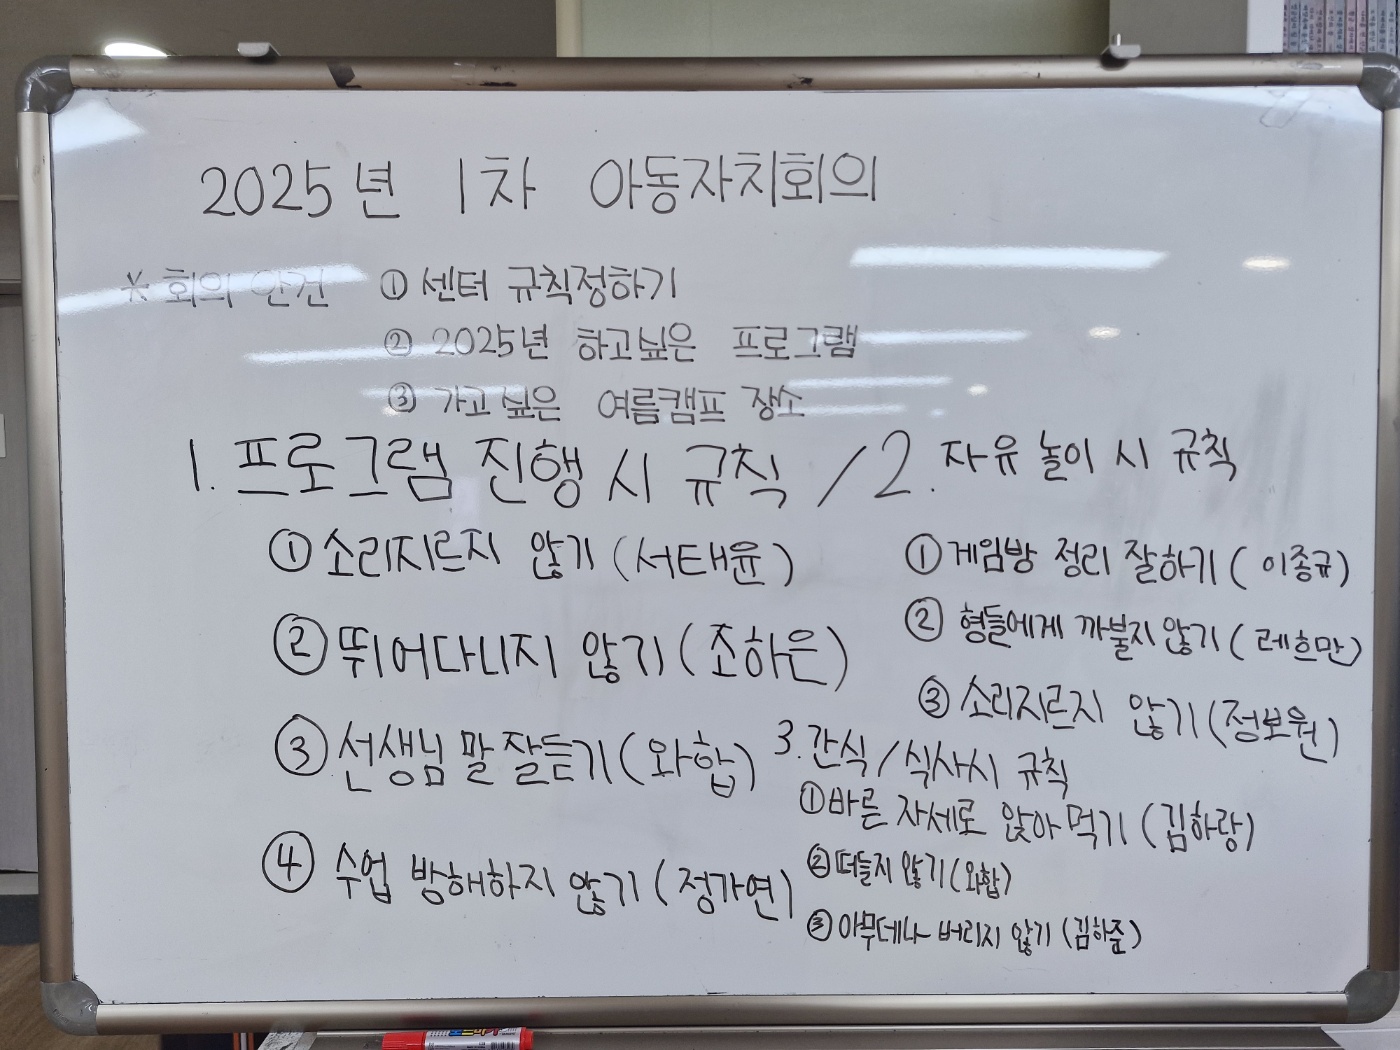 2025년 1차 아동자치회의
※ 회의 안건 ① 센터 규칙정하기
② 2025년 하고싶은 프로그램
③ 가고싶은 여름캠프 장소
1. 프로그램 진행 시 규칙 / 2. 자유 놀이 시 규칙
① 소리지르지 않기 (서태윤)
② 뛰어다니지 않기 (조하은)
③ 선생님 말 잘듣기 (와합)
④ 수업 방해하지 않기 (정가연)
① 게임방 정리 잘하기 (이종규)
② 형들에게 까불지 않기 (레흐만)
③ 소리지르지 않기 (정보원)
3. 간식 / 식사시 규칙
① 바른 자세로 앉아 먹기 (김하랑)
② 떠들지 않기 (와합)
③ 아무데나 버리지 않기 (김하준)